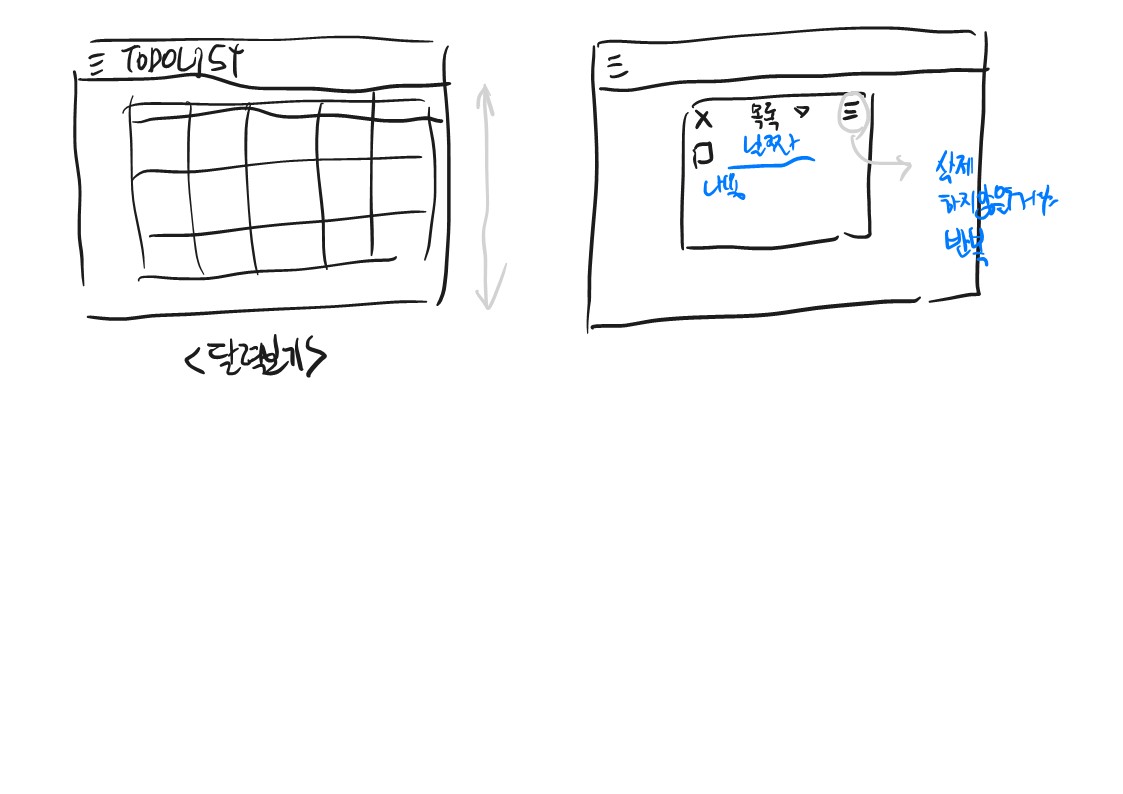 TODOLIST
<달력보기>
X 목록
날짜
내용
삭제
하지않을거야
반복